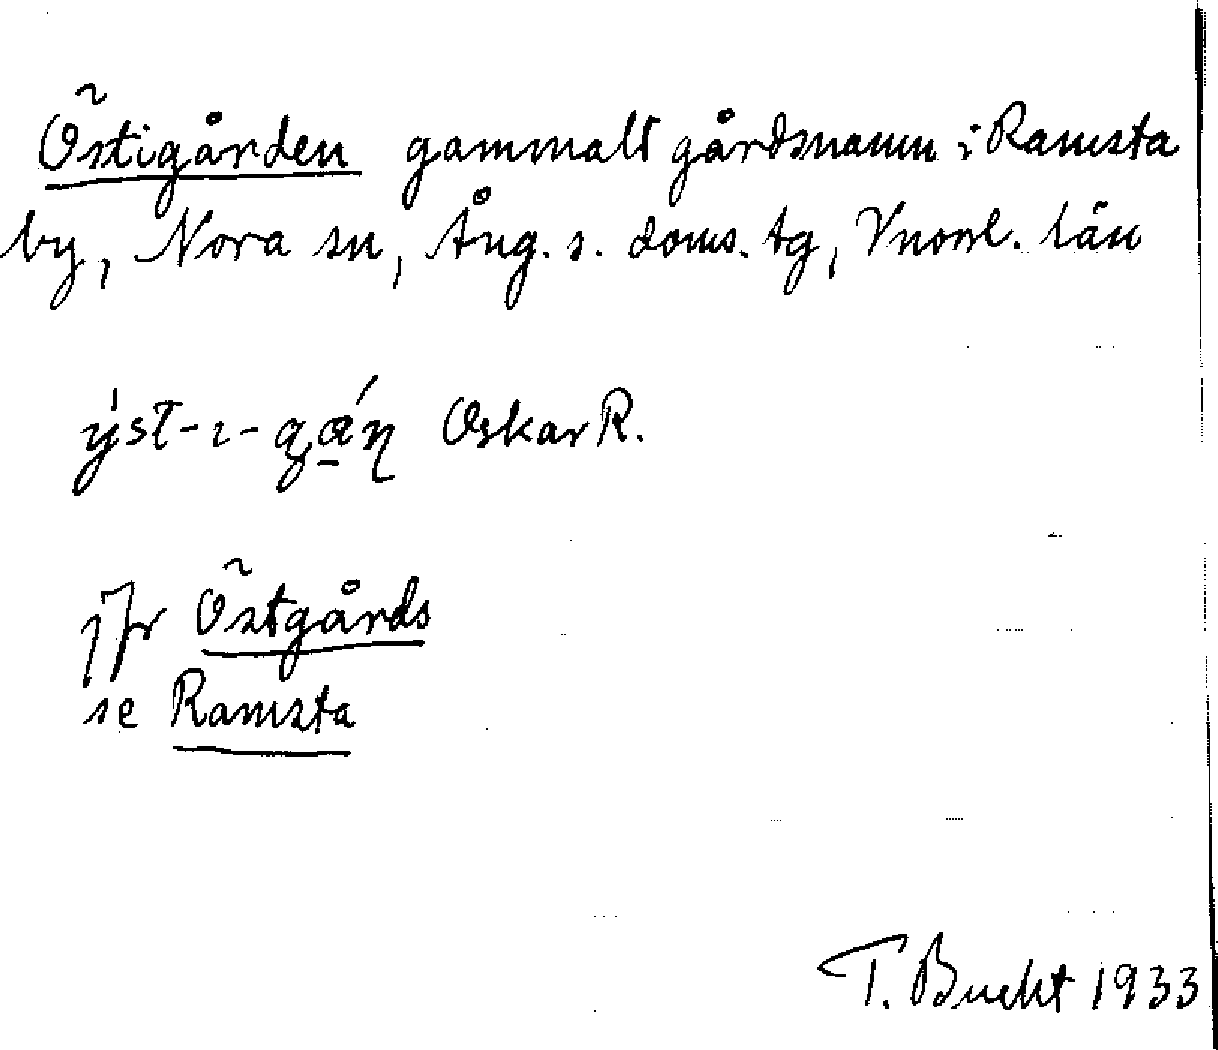 Östigården gammalt gårdsnamn i Ramsta
by, Nora sn, Ång. s. doms. tg, Vnorrl. län
ýst-ı-gά̠ṇ Oskar R.
jfr Östgårds
se Ramsta
T. Bucht 1933